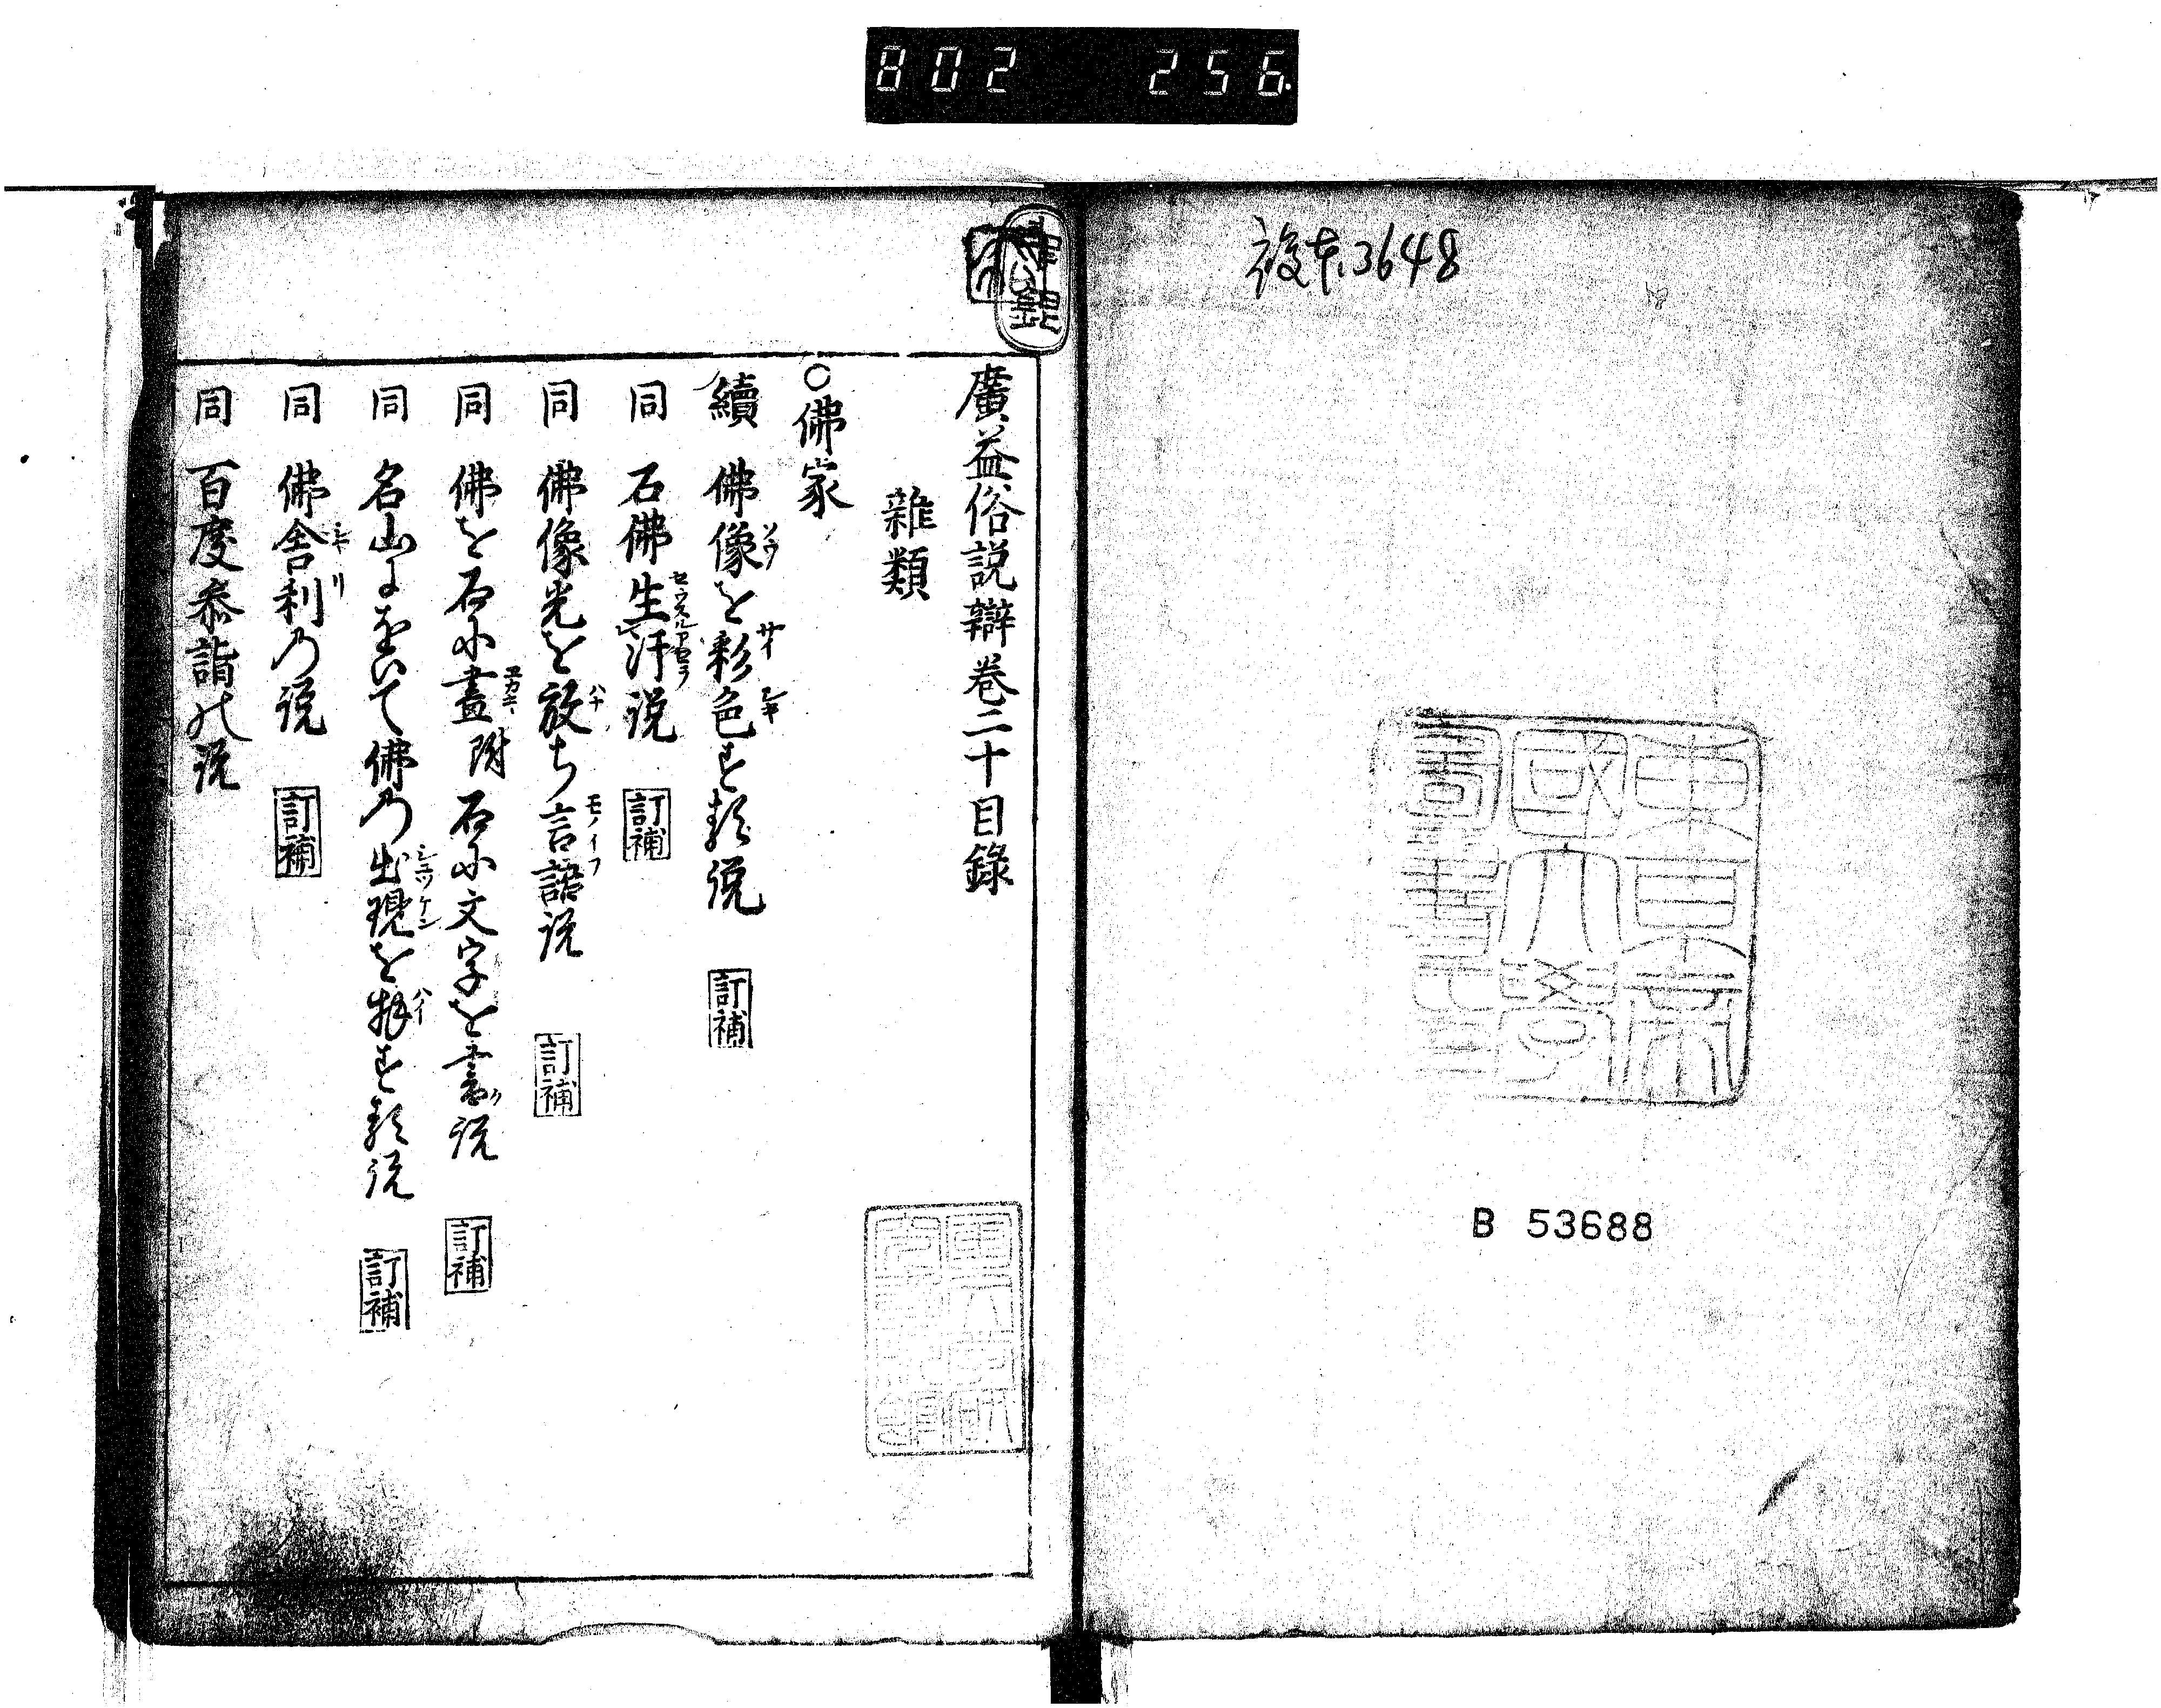 802 256.
複本.3648
東京帝國大學圖書印
B 53688
廣益俗説辯巻二十目録
雜類
○佛家
續 佛像を彩色する説 訂補
同 石佛生汗説 訂補
同 佛像光を放ち言語説 訂補
同 佛を石に畫附石に文字を書説 訂補
同 名山にをいて佛の出現を拜する説 訂補
同 佛舎利の説 訂補
同 百度參詣の説